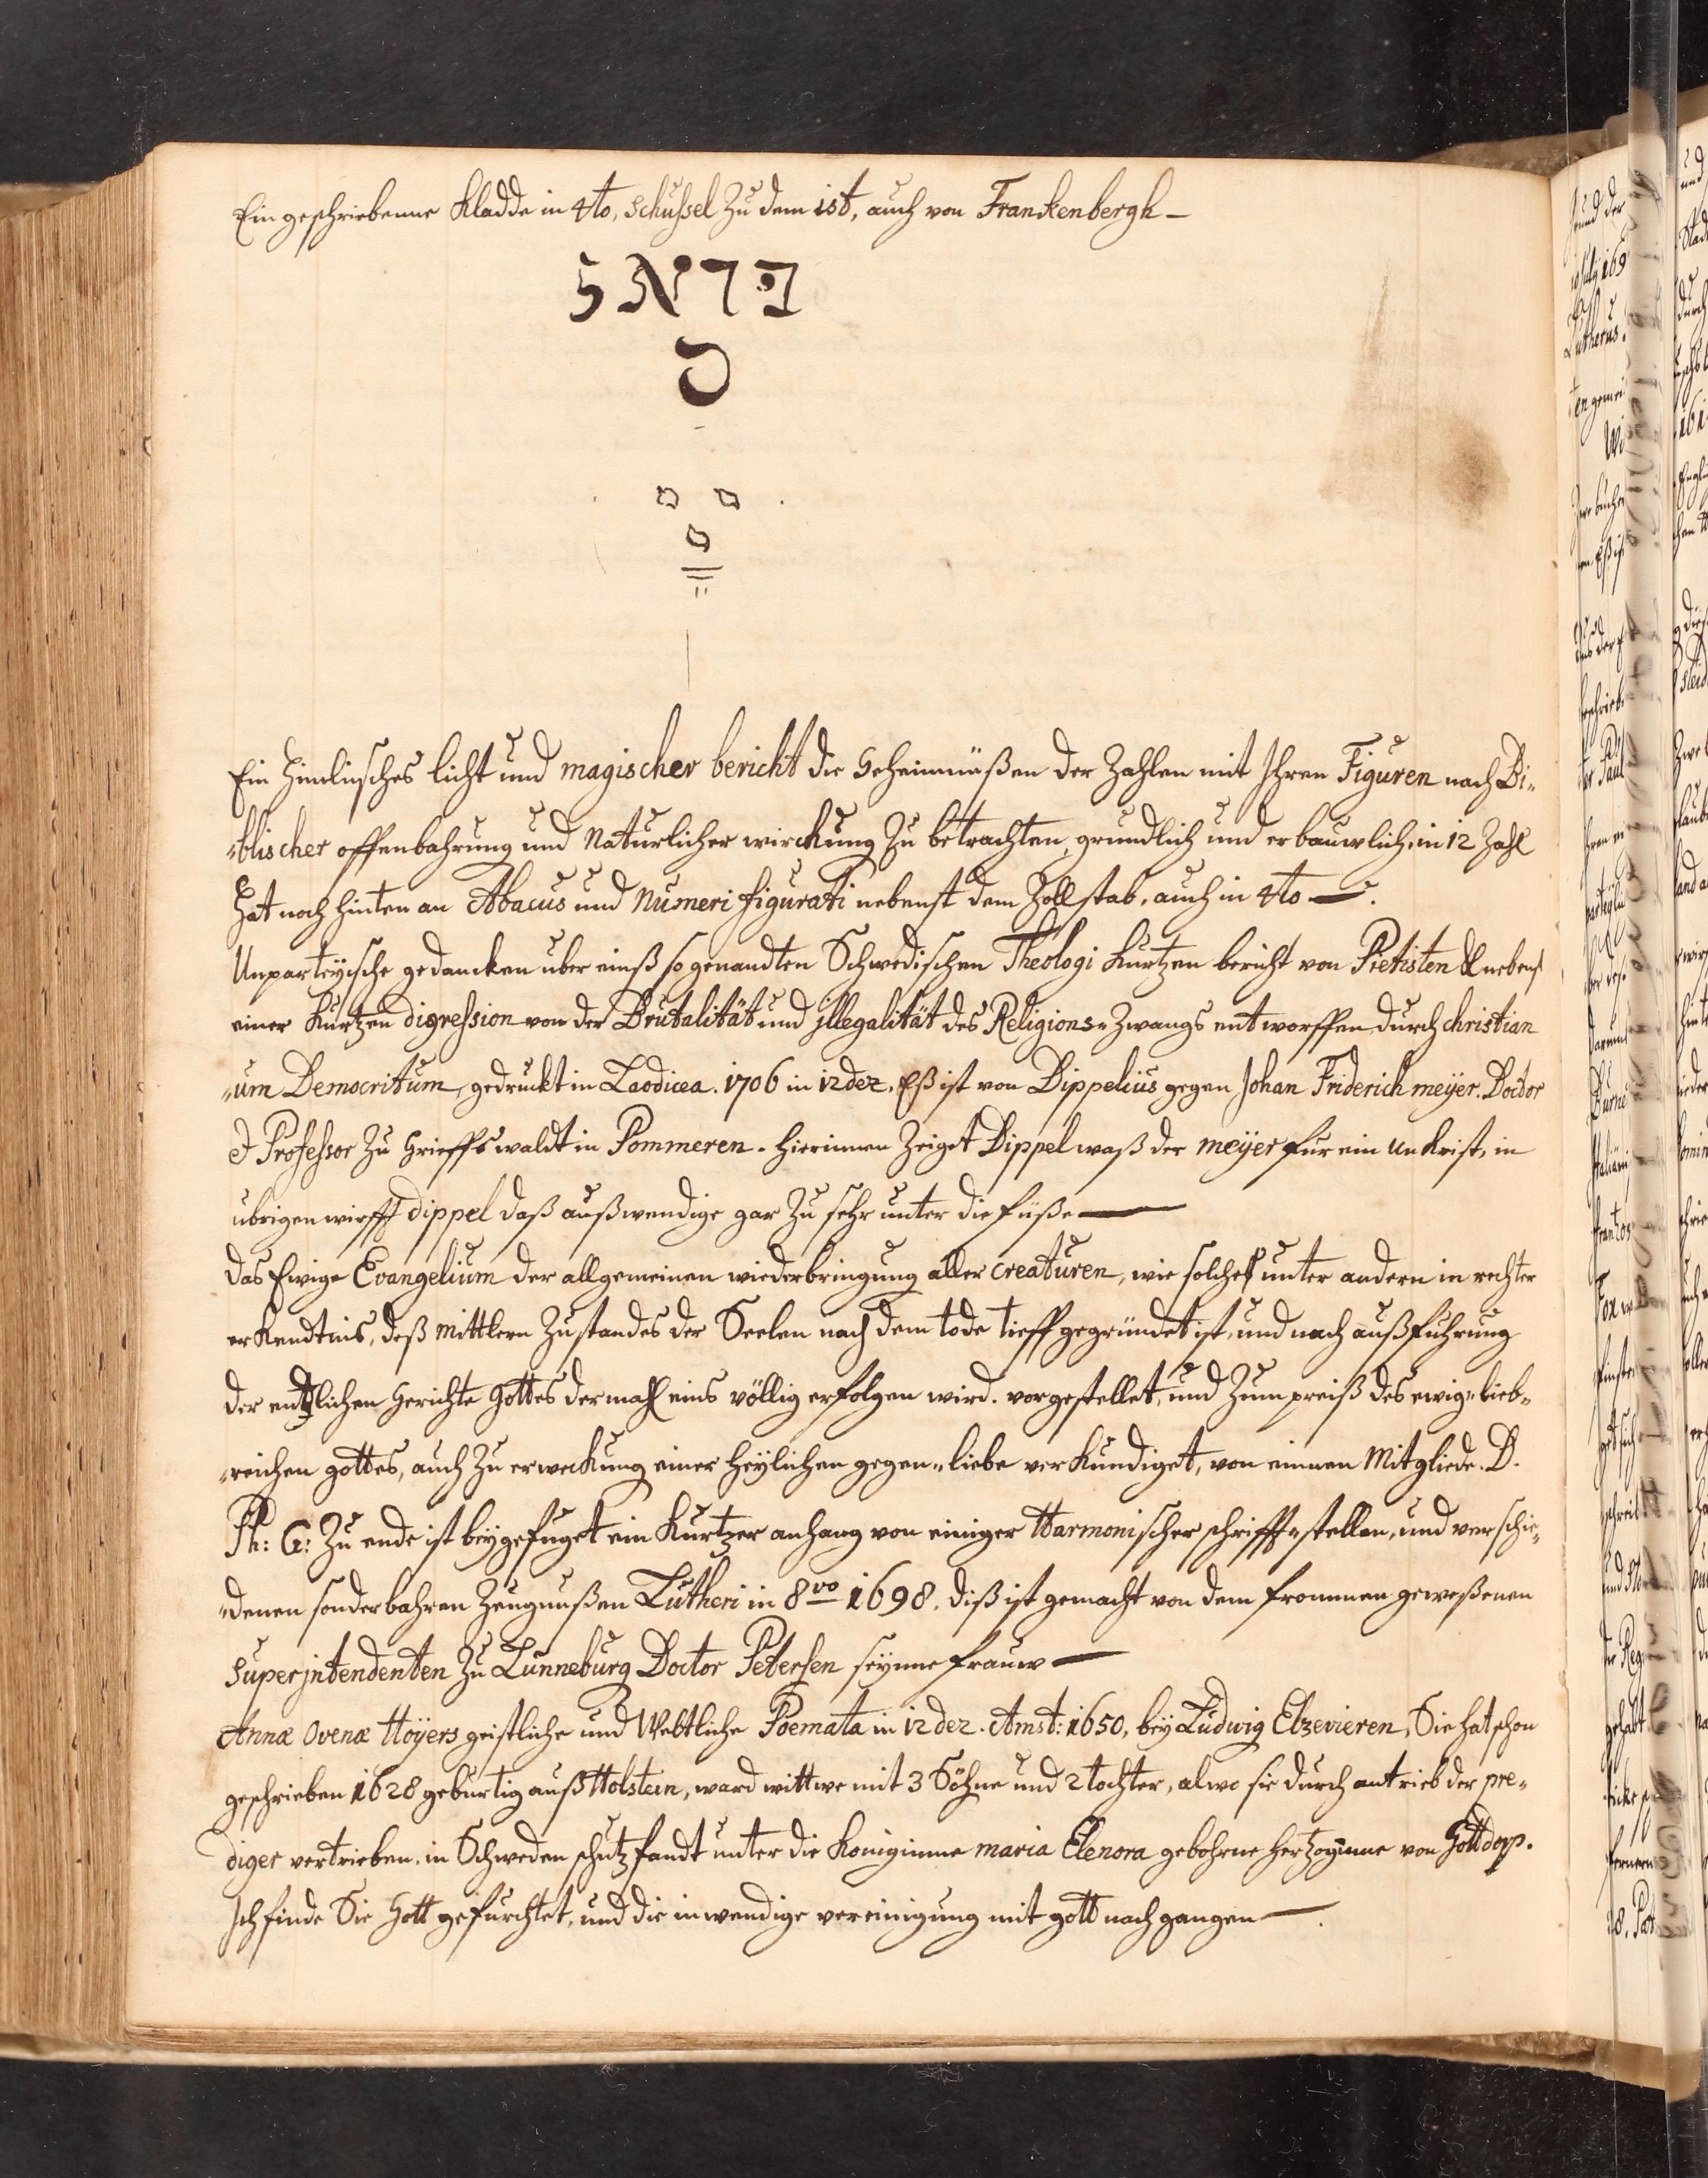 Ein geschriebenne Kladde in 4to, schussel Zu dem ist, auch von Frankenbergh -
Ein Himlisches licht und magischer bericht die Geheimnüßen der Zahlen mit Ihren Figuren nach Bi„
„blischer offenbahrung und Naturlicher wirckung Zu betrachten, grundlich und erbauwlich, in 12 Zahl
Hat noch hinten an Abacus und Numeri figurati nebenst dem Zollstab, auch in 4to —.
Unparteyische gedancken uber einß so genandten Schwedischen Theologi Kurtzen bericht von Pietisten & nebenst
einer Kurtzen digression von der Brutalität und jllegalität des Religions„Zwangs entworffen durch christian
„um Democritum, gedruckt in Laodicea. 1706 in 12dez. Eß ist von Dippelius gegen Johan Friderich meÿer. Doctor
& Professor Zu Grieffswaldt in Pommeren. Hierinnen Zeiget Dippel waß der meÿer fur ein unkrist, in
ubrigen wirfft dippel daß außwendige gar Zu sehr unter die fuße —
das Ewige Evangelium der allgemeinen wiederbringung aller creaturen, wie solches unter andern in rechter
erkendtnis, deß mittlern Zustandes der Seelen nach dem tode tieff gegründet ist, und nach außfuhrung
der entlichen Gerichte Gottes dermahl eins völlig erfolgen wird. vorgestellet, und Zum preiß des ewig„lieb„
„reichen gottes, auch Zu erweckung einer Heylichen gegen„liebe verkundiget, von einnen Mitgliede. D.
Ph: G: Zu ende ist beygefuget ein Kurtzer anhang von einiger Harmonischer schrifft„stellen, und verschie„
„denen sonderbahren Zeugnußen Lutheri in 8vo 1698. diß ist gemacht von dem frommen geweßenen
superjntendenten Zu Lunneburg Doctor Petersen seynne frauw —
Annæ Ovenæ Hoÿers geistliche und Weltliche Poemata in 12dez. Amst: 1650, bey Ludwig Elzevieren, Sie hat schon
geschrieben 1628 geburtig auß Holstein, ward wittwe mit 3 Söhne und 2 tochter, alwo sie durch antrieb der pre„
diger vertrieben. in Schweden schutz fandt unter die Koniginne maria Elenora gebohrne Hertzoginne von Gottdorp.
Ich finde Sie Gott gefurchtet, und die inwendige vereinigung mit gott nachgangen —.